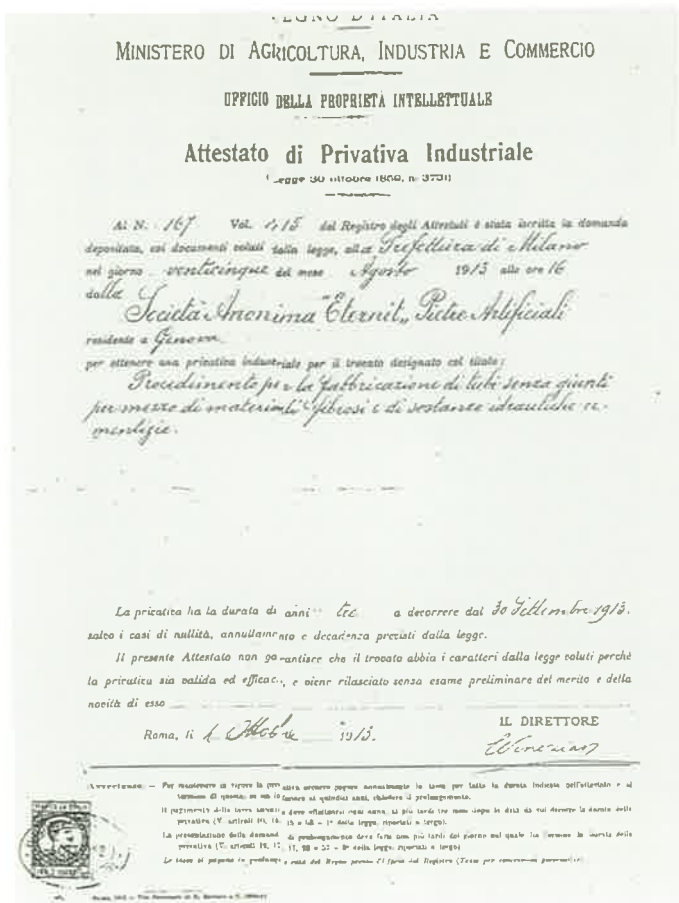 REGNO D'ITALIA
MINISTERO DI AGRICOLTURA, INDUSTRIA E COMMERCIO
UFFICIO DELLA PROPRIETÀ INTELLETTUALE
Attestato di Privativa Industriale
(Legge 30 ottobre 1859, n. 3731)
Al N. 167 Vol. 415 del Registro degli Attestati è stata iscritta la domanda
depositata, coi documenti voluti dalla legge, alla Prefettura di Milano
nel giorno venticinque del mese Agosto 1913 alle ore 16
dalla
Società Anonima "Eternit" Pietre Artificiali
residente a Genova
per ottenere una privativa industriale per il trovato designato col titolo:
Procedimento per la fabbricazione di tubi senza giunti
per mezzo di materiali fibrosi e di sostanze idrauliche ce-
mentizie.
La privativa ha la durata di anni tre a decorrere dal 30 Settembre 1913.
salvo i casi di nullità, annullamento e decadenza previsti dalla legge.
Il presente Attestato non garantisce che il trovato abbia i caratteri dalla legge voluti perchè
la privativa sia valida ed efficace, e viene rilasciato senza esame preliminare del merito e della
novità di esso
Roma, li Ottobre 1913.
IL DIRETTORE
Avvertenze. — Per mantenere in vigore la privativa occorre pagare annualmente la tassa per tutta la durata indicata nell'attestato e al
termine di questa, se inferiore ai quindici anni, chiedere il prolungamento.
Il pagamento della tassa annuale deve effettuarsi ogni anno, al più tardi tre mesi dopo la data da cui decorre la durata della
privativa (V. articoli 10, 16 della legge, riportati a tergo).
La presentazione della domanda di prolungamento deve farsi non più tardi del giorno nel quale ha termine la durata della
privativa (V. articoli della legge, riportati a tergo)